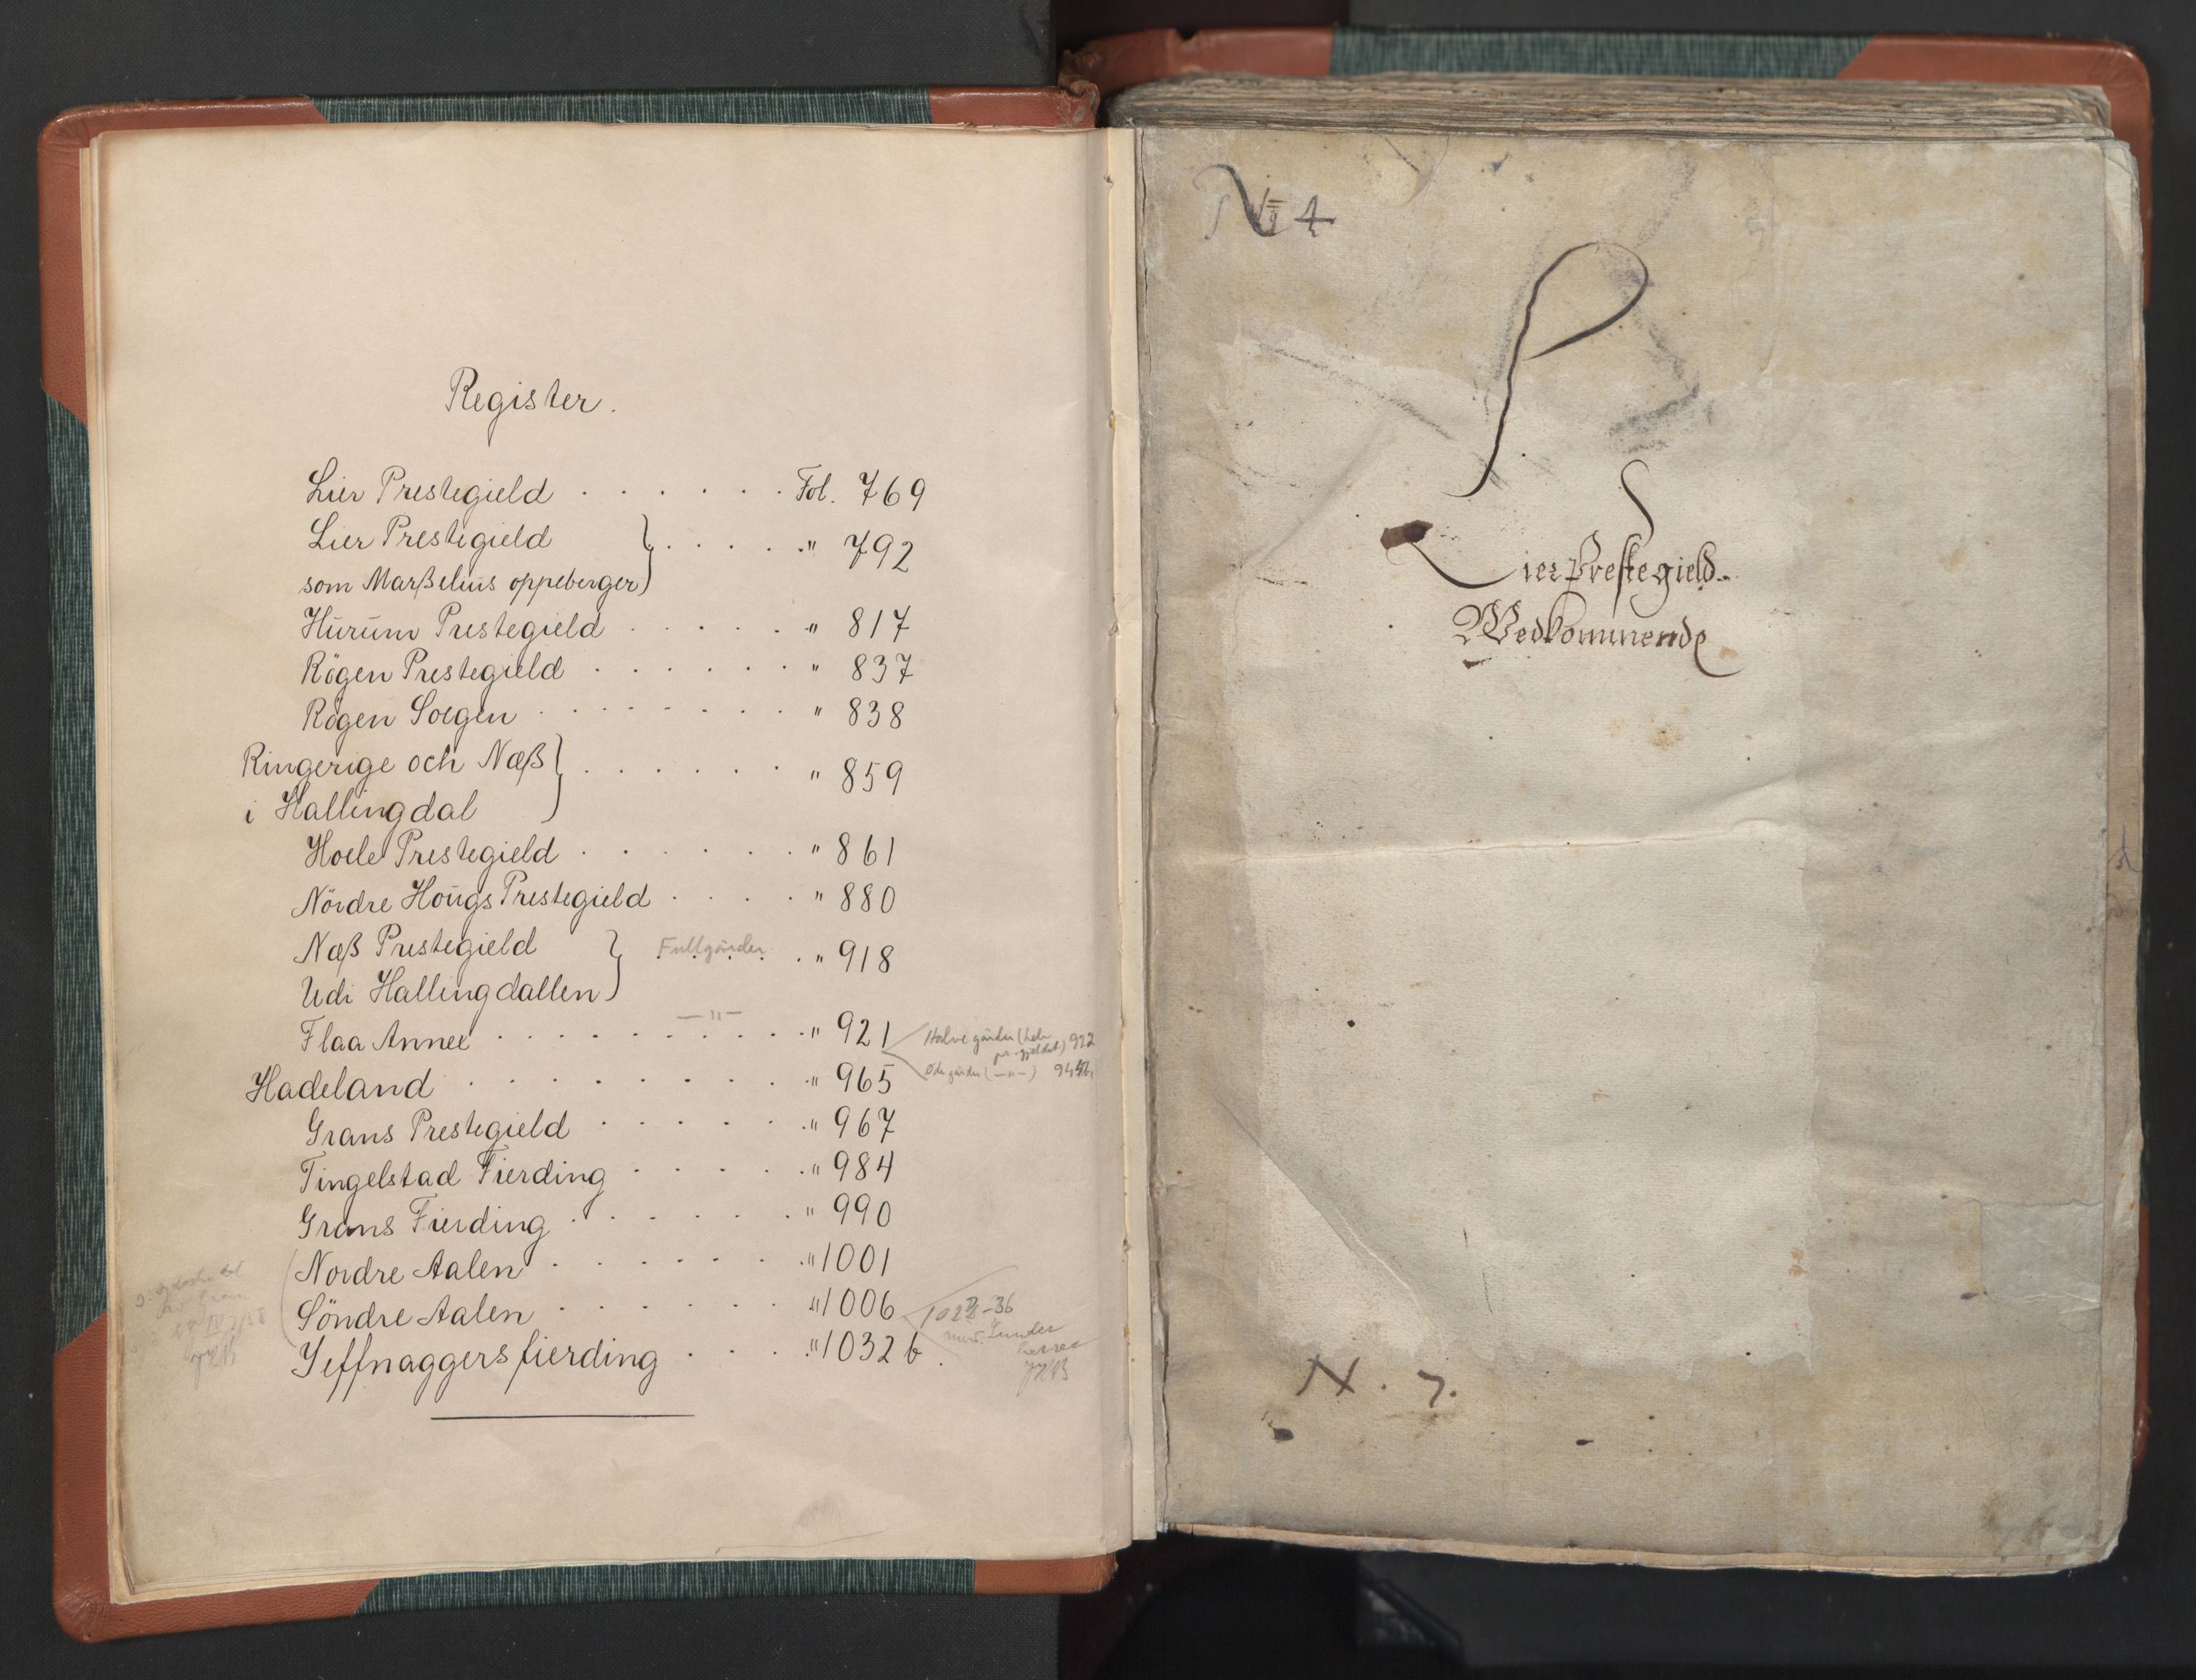 Register.
Lier Prestegield . . . . . . Fol. 769
Lier Prestegield
som Marßelius oppeberger } . . . . " 792
Hŭrŭm Prestegield . . . . . " 817
Rögen Prestegield . . . . . . " 837
Rögen Soegen . . . . . . . " 838
Ringerige och Næß
i Hallingdal } . . . . . . " 859
Hoele Prestegield . . . . . . " 861
Nördre Hoŭgs Prestegield . . . . " 880
Næß Prestegield
Udi Hallingdallen } Fullgårder . . " 918
— " —
Flaa Annex . . . . . . . . " 921
Halve gårder (hele pr.gjeldet) 922
Øde gårder (—"—)
Hadeland . . . . . . . . " 965
Grans Prestegield . . . . . " 967
Tingelstad Fierding . . . . . " 984
Grans Fierding . . . . . . " 990
Nordre Aalen . . . . . . " 1001
Söndre Aalen . . . . . . " 1006
Jeffnaggers fierding . . . " 1032 b.
No 4
Lier Prestegield
Wedkommende
N. 7.